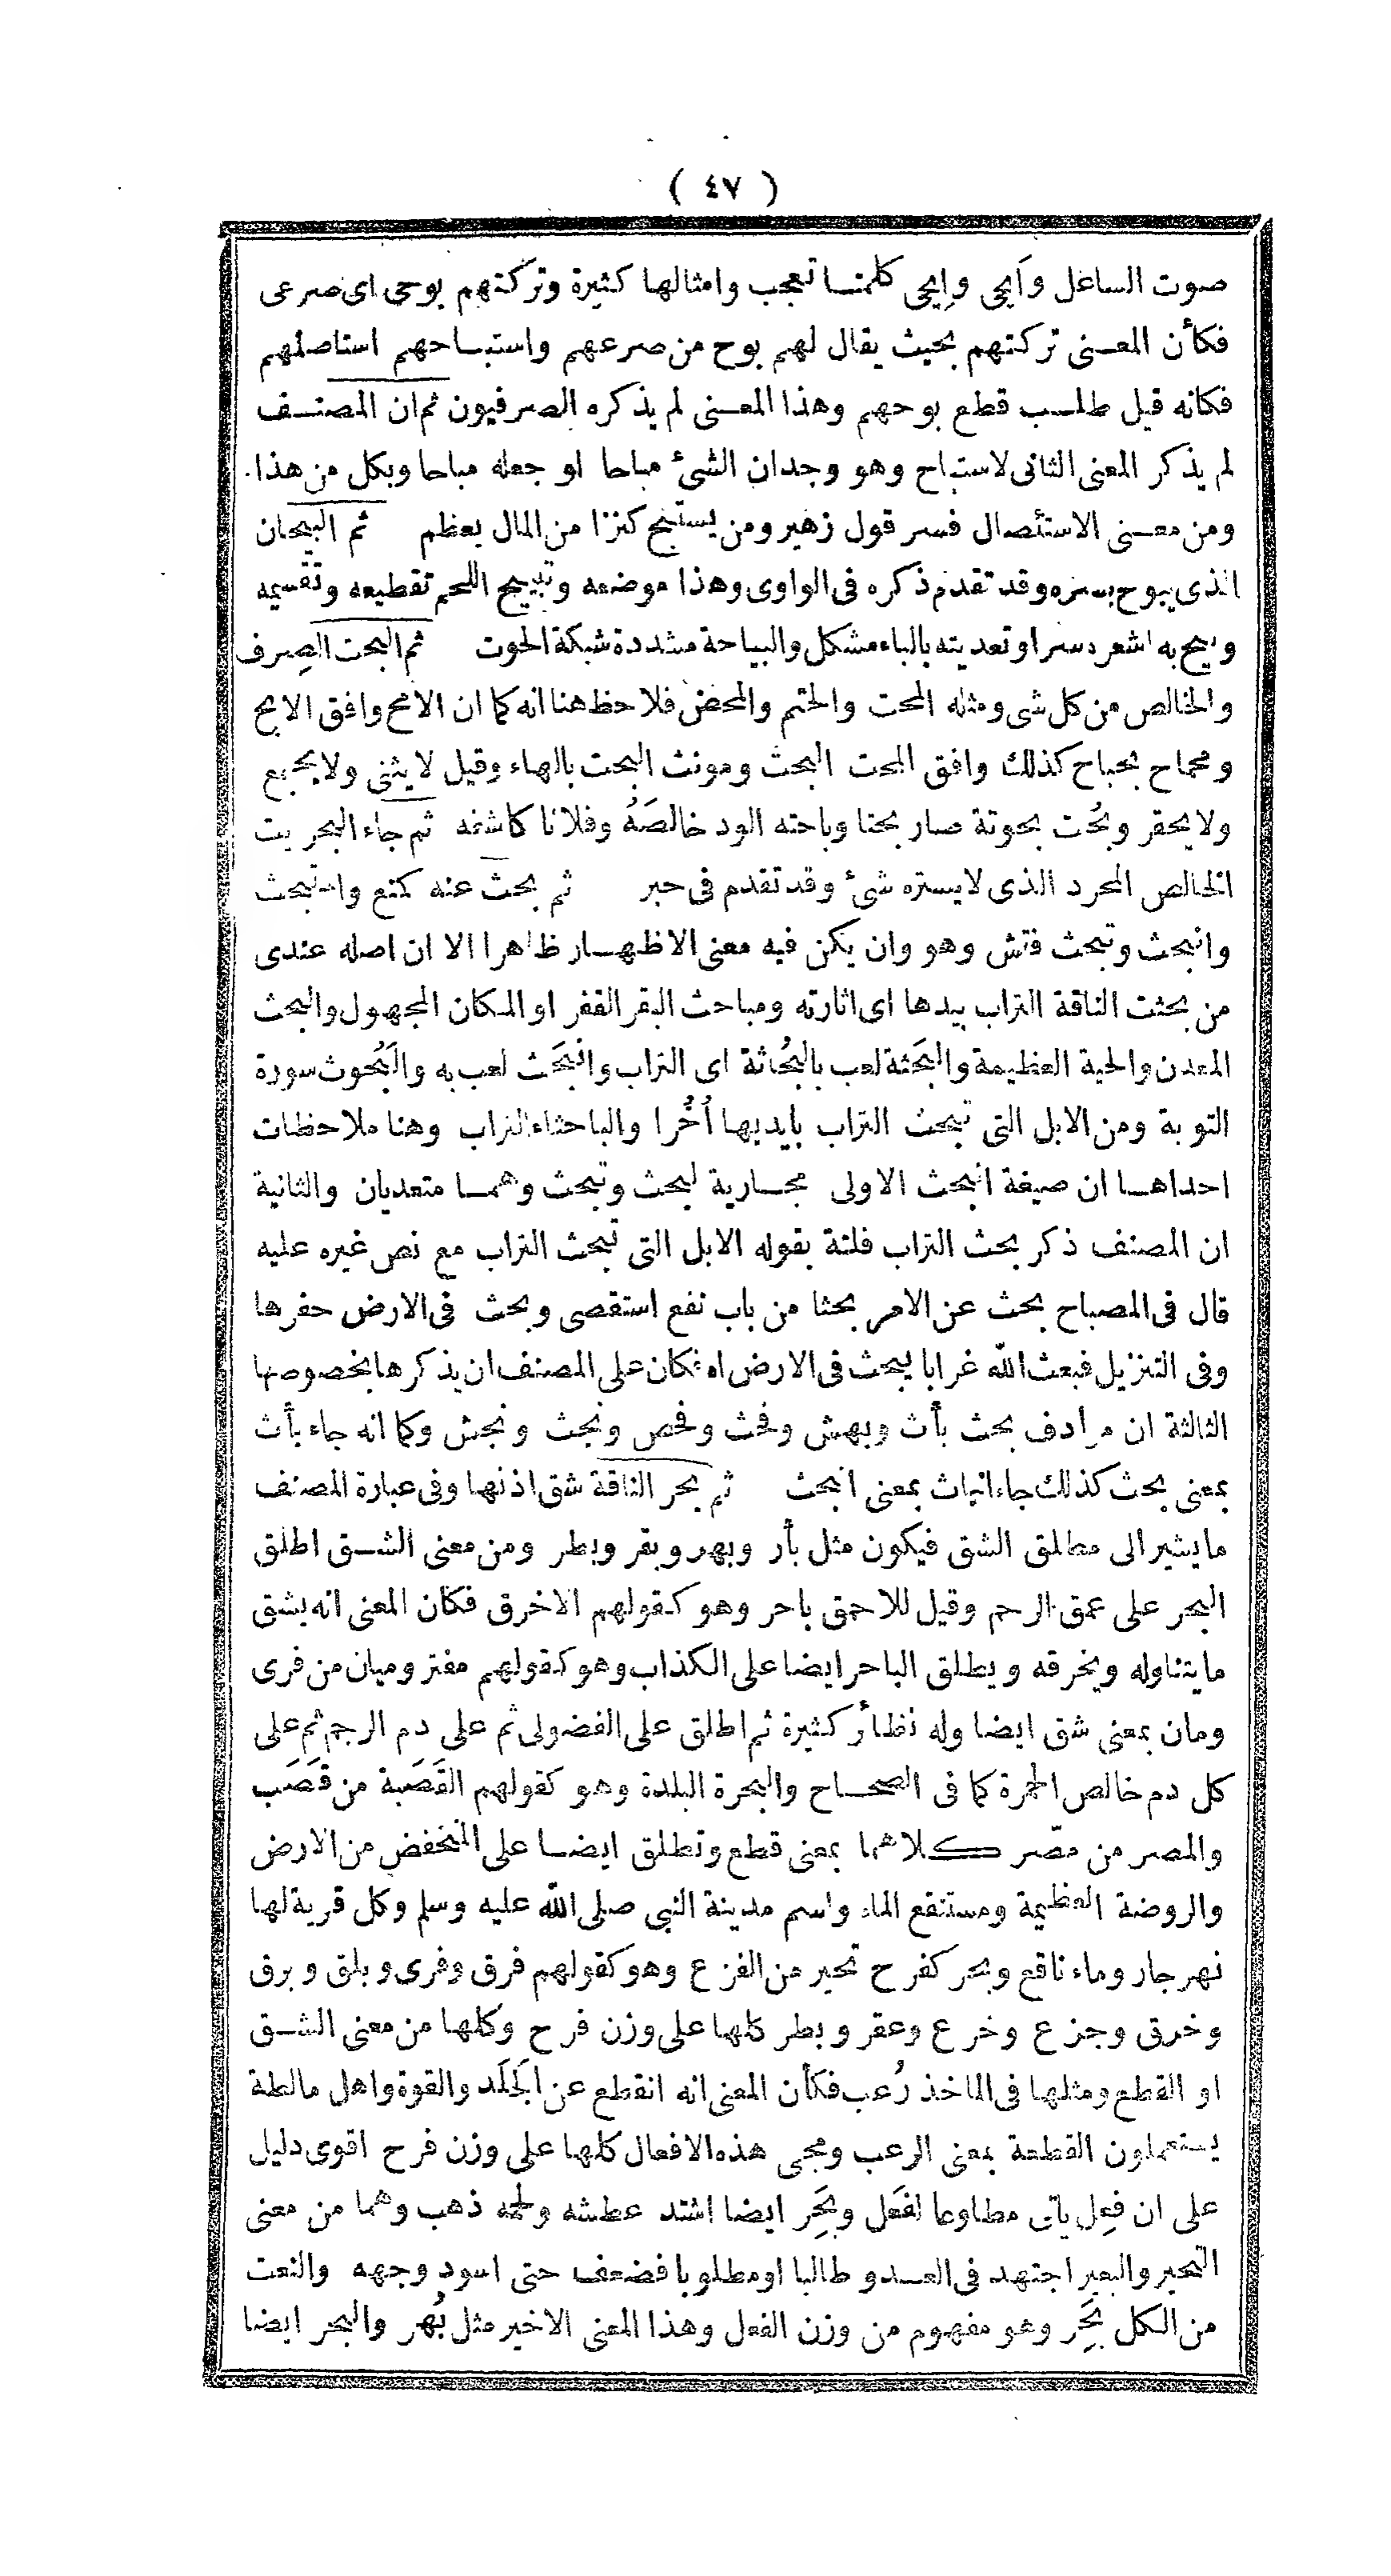 ( ٤٧ )
صوت الساعل وأيحى وإيحى كلمتا تعجب وامثالها كثيرة وتركتهم بوحى اى صرعى
فكأن المعنى تركتهم بحيث يقال لهم بوح من صرعهم واستباحهم استاصلهم
فكانه قيل طلب قطع بوحهم وهذا المعنى لم يذكره الصرفيون ثم ان المصنف
لم يذكر المعنى الثانى لاستباح وهو وجدان الشئ مباحا او جعله مباحا وبكل من هذا
ومن معنى الاستئصال فسر قول زهير ومن يستبح كنزا من المال يعظم ثم البيحان
الذى يبوح بسره وقد تقدم ذكره فى الواوى وهذا موضعه وتبييح اللحم تقطيعه وتقسيمه
وبيح به اشعره سرا وتعديته بالباء مشكل والبياحة مشددة شبكة الحوت ثم البحت الصرف
والخالص من كل شى ومثله المحت والحتم والمحض فلاحظ هنا انه كما ان الامح وافق الابح
ومحماح بحباح كذلك وافق المحت البحت ومونث البحت بالهاء وقيل لا يثنى ولا يجمع
ولا يحقر وبحُت بحوتة صار بحتا وباحته الود خالصَهُ وفلانا كاشفه ثم جاء البحريت
الخالص المجرد الذى لا يستره شئ وقد تقدم فى حبر ثم بحث عنه كمنع واستبحث
وانبحث وتبحث فتش وهو وان يكن فيه معنى الاظهار ظاهرا الا ان اصله عندى
من بحثت الناقة التراب بيدها اى اثارته ومباحث البقر القفر او المكان المجهول والبحث
المعدن والحية العظيمة والبَحْثة لعب بالبُحَاثة اى التراب وانبَحَث لعب به والبُحوث سورة
التوبة ومن الابل التى تبحث التراب بايديها أُخُرا والباحثاء التراب وهنا ملاحظات
احداها ان صيغة انبحث الاولى مجارية لبحث وتبحث وهما متعديان والثانية
ان المصنف ذكر بحث التراب فلتة بقوله الابل التى تبحث التراب مع نص غيره عليه
قال فى المصباح بحث عن الامر بحثا من باب نفع استقصى وبحث فى الارض حفرها
وفى التنزيل فبعث الله غرابا يبحث فى الارض اه فكان على المصنف ان يذكرها بخصوصها
الثالثة ان مرادف بحث بأث وبهش وفحث وفحص ونجث ونجش وكما انه جاء بأث
بمعنى بحث كذلك جاء انباث بمعنى انبحث ثم بحر الناقة شق اذنها وفى عبارة المصنف
ما يشير الى مطلق الشق فيكون مثل بأر وبهر وبقر وبطر ومن معنى الشق اطلق
البحر على عمق الرحم وقيل للاحمق باحر وهو كقولهم الاخرق فكان المعنى انه يشق
ما يتناوله ويخرقه ويطلق الباحر ايضا على الكذاب وهو كقولهم مفتر وميان من فرى
ومان بمعنى شق ايضا وله نظائر كثيرة ثم اطلق على الفضولى ثم على دم الرحم ثم على
كل دم خالص الحمرة كما فى الصحاح والبحرة البلدة وهو كقولهم القَصَبة من قَصَب
والمصر من مصّر كلاهما بمعنى قطع وتطلق ايضا على المنخفض من الارض
والروضة العظيمة ومستنقع الماء واسم مدينة النبى صلى الله عليه وسلم وكل قرية لها
نهر جار وماء ناقع وبحر كفرح تحير من الفزع وهو كقولهم فرق وفرى وبلق وبرق
وخرق وجزع وخرع وعقر وبطر كلها على وزن فرح وكلها من معنى الشق
او القطع ومثلها فى الماخذ رُعب فكأن المعنى انه انقطع عن الجَلَد والقوة واهل مالطة
يستعملون القطعة بمعنى الرعب ومجى هذه الافعال كلها على وزن فرح اقوى دليل
على ان فعِل ياتى مطاوعا لفعَل وبَحِر ايضا اشتد عطشه ولحمه ذهب وهما من معنى
التحير والبعير اجتهد فى العدو طالبا او مطلوبا فضعف حتى اسود وجهه والنعت
من الكل بَحِر وهو مفهوم من وزن الفعل وهذا المعنى الاخير مثل بُهر والبحر ايضا